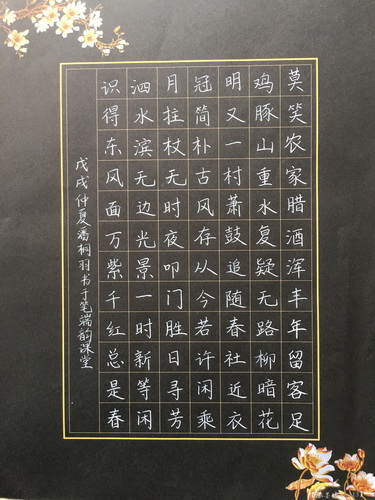 莫笑农家腊酒浑丰年留客足
鸡豚山重水复疑无路柳暗花
明又一村萧鼓追随春社近衣
冠简朴古风存从今若许闲乘
月拄杖无时夜叩门胜日寻芳
泗水滨无边光景一时新等闲
识得东风面万紫千红总是春
戊戌仲夏潘桐羽书于笔端韵课堂